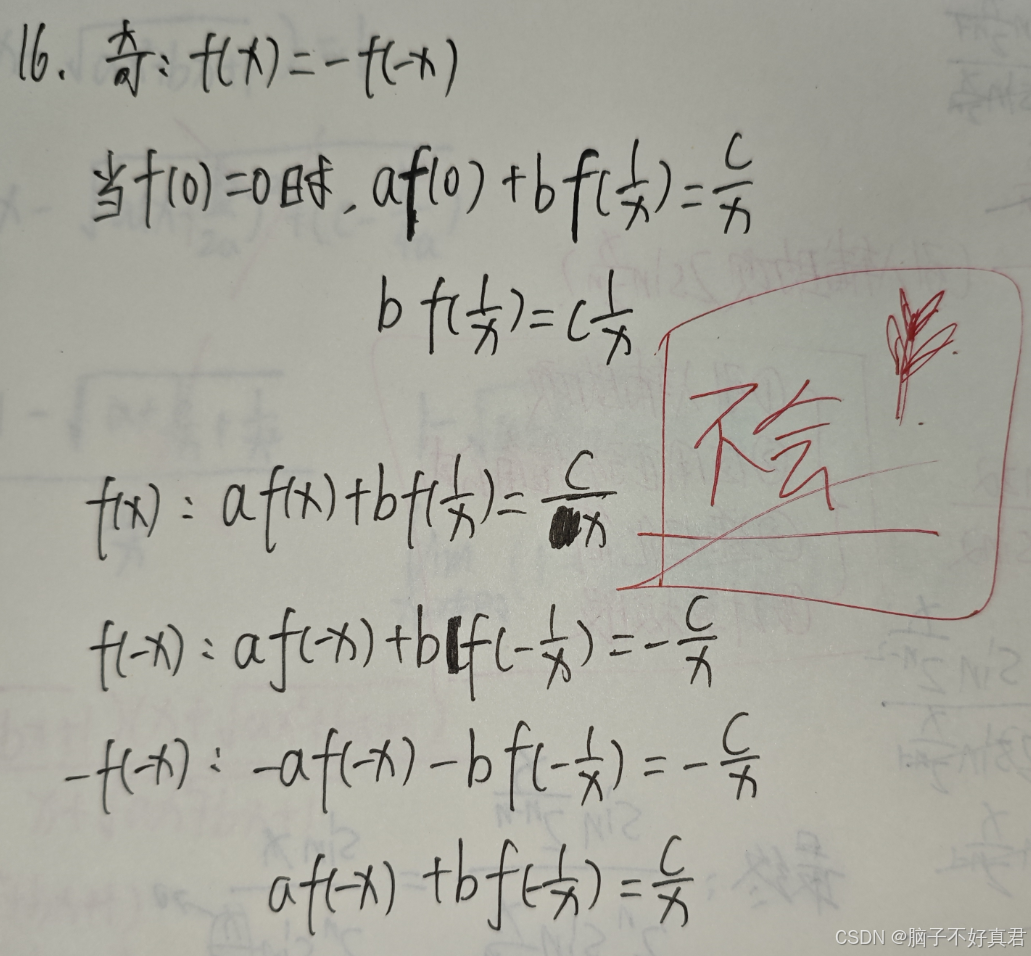 16. 奇: f(x)=-f(-x)
当f(0)=0时, af(0)+bf(1/x)=c/x
bf(1/x)=c1/x
不会
f(x): af(x)+bf(1/x)=c/x
f(-x): af(-x)+bf(-1/x)=-c/x
-f(-x): -af(-x)-bf(-1/x)=-c/x
af(-x)+bf(-1/x)=c/x
CSDN @脑子不好真君